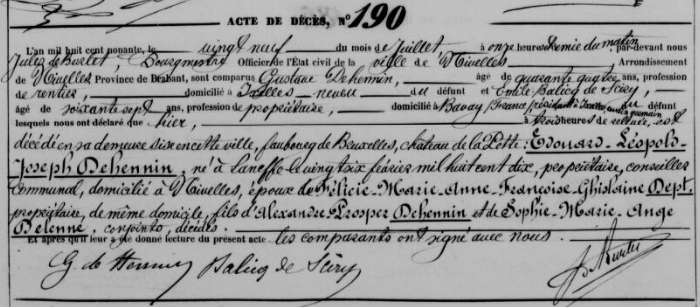 ACTE DE DÉCÈS, N° 190
L'an mil huit cent nonante, le vingt neuf du mois de Juillet, à onze heures & demie du matin par-devant nous
Jules de Burlet, Bourgmestre Officier de l'État civil de la ville de Nivelles Arrondissement
de Nivelles Province de Brabant, sont comparus Gustave Dehennin, âgé de quarante quatre ans, profession
de rentier, domicilié à Ixelles neveu du défunt et Emile Balicq de Séizy,
âgé de soixante sept ans, profession de propriétaire, domicilié à Bavay (France) cousin germain du défunt
lesquels nous ont déclaré que hier, à trois heures de est
décédé en sa demeure sise en cette ville, faubourg de Bruxelles, chateau de la Potte: Edouard-Léopold-
Joseph Dehennin, né à Laneffe le vingt six février mil huit cent dix, propriétaire, conseiller
communal, domicilié à Nivelles, époux de Félicie-Marie-Anne-Françoise-Ghislaine Dept,
propriétaire, de même domicile, fils d'Alexandre Prosper Dehennin et de Sophie-Marie-Ange
Delenne, conjoints, décédés.
Et après qu'il leur a été donné lecture du présent acte les comparants ont signé avec nous.
G. de Hennin Balicq de Séizy J. de Burlet